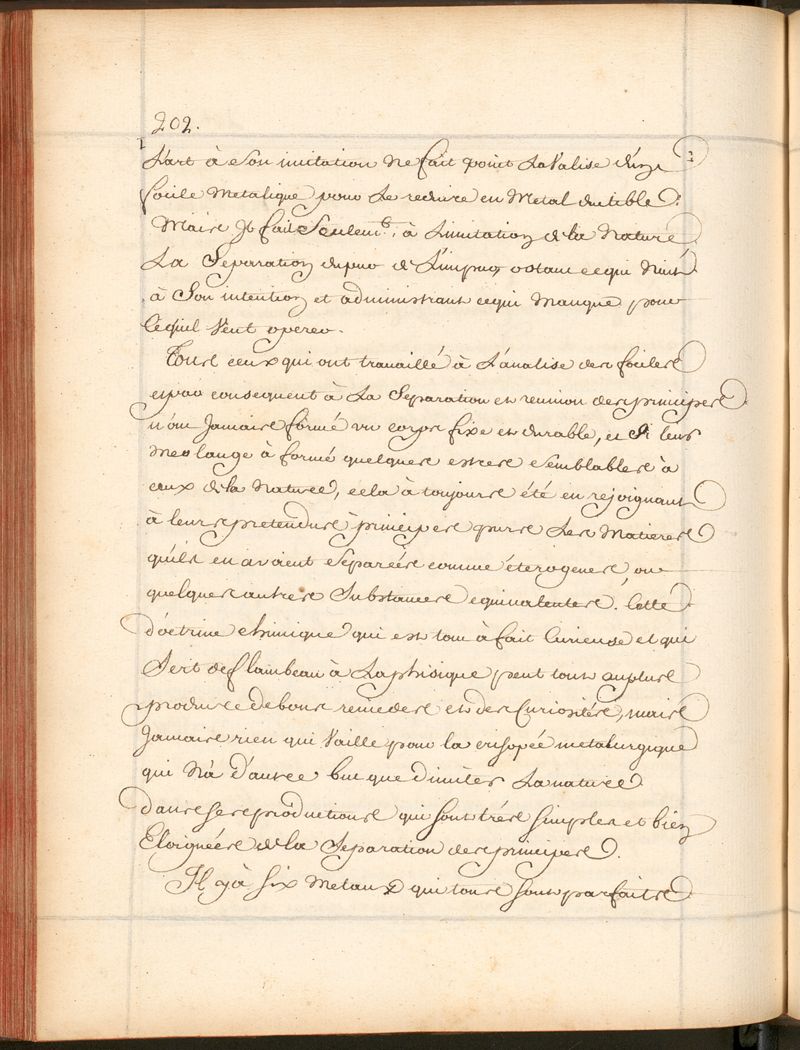 202.
L'art à Son imitation ne fait point L'analise d'un
focile Metalique pour Le reduire en Metal ductible.
Mais Jl fait Seulemt. à Limitation de la Nature
La Separation du pur de L'impur, ostant ce qui Nuit
à Son intention et administrant ce qui Manque pour
Ce quil Veut operer.
Tous ceux qui ont travaillé à L'analise des fociles
et par consequent à La Separation et reunion des principes
n'ont Jamais formé un corps fixe et durable, et Si leur
Melange à formé quelques estres Semblables à
ceux de la Nature, cela à toujours été en rejoignant
à leurs pretendus principes purs Les Matieres
qu'ils en avaient Separées comme éterogenes, ou
quelques autres Substances equivalentes. Cette
doctrine chimique qui est tout à fait Curieuse et qui
Sert de flambeau à La phisique peut tout au plus
produire de bons remedes et des Curiosités, mais
Jamais rien qui Vaille pour la crisopée metalurgique
qui N'à d'autre but que d'imiter La nature
dans ses productions qui sont trés simples et bien
Eloignées de la Separation des principes.
Jl y à six Metaux qui tous sont parfaits